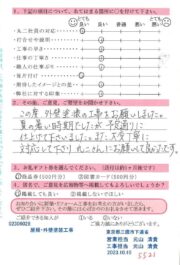 1. 下記の項目について、あてはまる箇所に○を付けて下さい
とても良い 良い 普通 悪い とても悪い
・丸二社員の対応
・打合せや説明
・工事の早さ
・仕事の丁寧さ
・職人の仕事ぶり
・後片付け
・期待したイメージとの差
・工事の出来栄え
2. その他、ご意見、ご要望をお聞かせ下さい。
この度 外壁塗装の工事をお願いしました。
夏の暑い時期でしたが 予定通りに
仕上げて下さいました。また、大変丁寧に
対応して下さり 丸二さんにお願いして良かったです。
3. お礼ギフト券を選んでください
商品券(500円分)
図書カード(500円分)
4. 匿名で、ご意見を広報物等へ掲載してもよろしいでしょうか?
掲載しても良い
掲載しないでほしい
ご協力誠にありがとうございました。
02209029
屋根・外壁塗装工事
東京都三鷹市下連雀
営業担当 元山 清貴
工事担当 元山 清貴
2023.10.10
5521